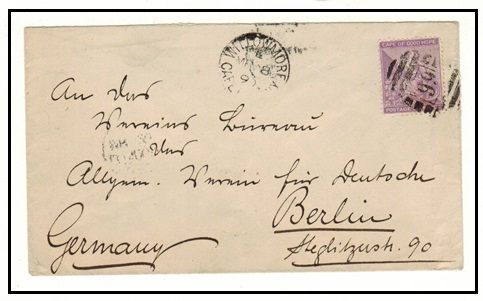 CAPE OF GOOD HOPE
WILLOWMORE
An das
Vereins Bureau
des
Allgem. Verein für Deutsche
Berlin
Steglitzerstr. 90
Germany